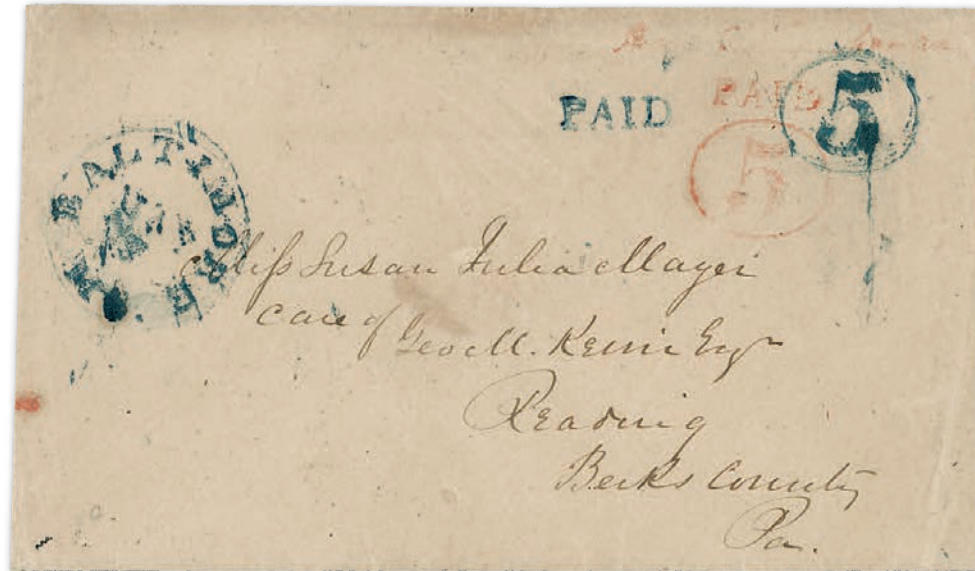 PAID PAID 5
5
BALTIMORE Md
Miss Susan Julia Mayer
Care of
Geo M. Keim Esqr
Reading
Berks County
Pa.